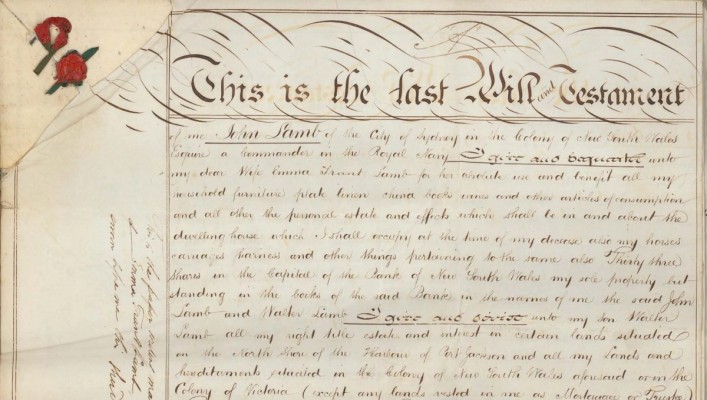 This is the last Will and Testament
of me John Lamb of the City of Sydney in the Colony of New South Wales
Esquire a Commander in the Royal Navy I give and bequeath unto
my dear Wife Emma Trant Lamb for her absolute use and benefit all my
household furniture plate linen china books wines and other articles of consumption
and all other the personal estate and effects which shall be in and about the
dwelling house which I shall occupy at the time of my decease also my horses
carriages harness and other things pertaining to the same also Thirty three
shares in the Capital of the Bank of New South Wales my sole property but
standing in the books of the said Bank in the names of me the said John
Lamb and Walter Lamb I give and devise unto my son Walter
Lamb all my right title estate and interest in certain lands situated
on the North Shore of the Harbour of Port Jackson and all my Lands and
hereditaments situated in the Colony of New South Wales aforesaid or in the
Colony of Victoria (except any lands vested in me as Mortgagee or Trustee)
This is the paper writing
Emma Trant Lamb
before me this